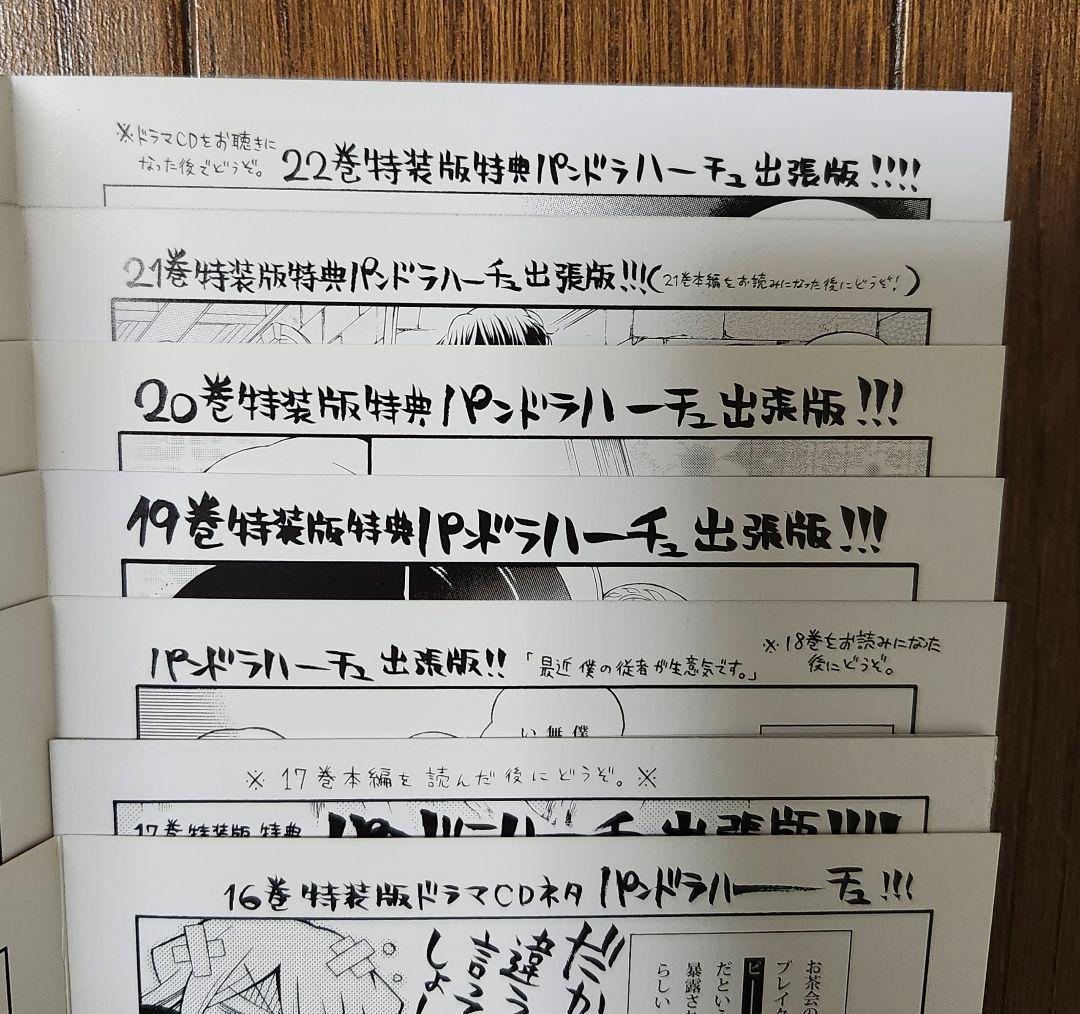 ※ドラマCDをお聴きに
なった後でどうぞ。
22巻特装版特典パンドラハーチュ出張版!!!!
21巻特装版特典パンドラハーチュ出張版!!!(21巻本編をお読みになった後にどうぞ!)
20巻特装版特典パンドラハーチュ出張版!!!
19巻特装版特典パンドラハーチュ出張版!!!
パンドラハーチュ出張版!!「最近僕の従者が生意気です。」
※18巻をお読みになった
後にどうぞ。
僕
無
い
※17巻本編を読んだ後にどうぞ。※
17巻特装版特典 パンドラハーチュ出張版!!!!
16巻特装版ドラマCDネタ パンドラハーチュ!!!
だか
違う
言って
しょ
お茶会の
ブレイク
だという
暴露さ
らしい